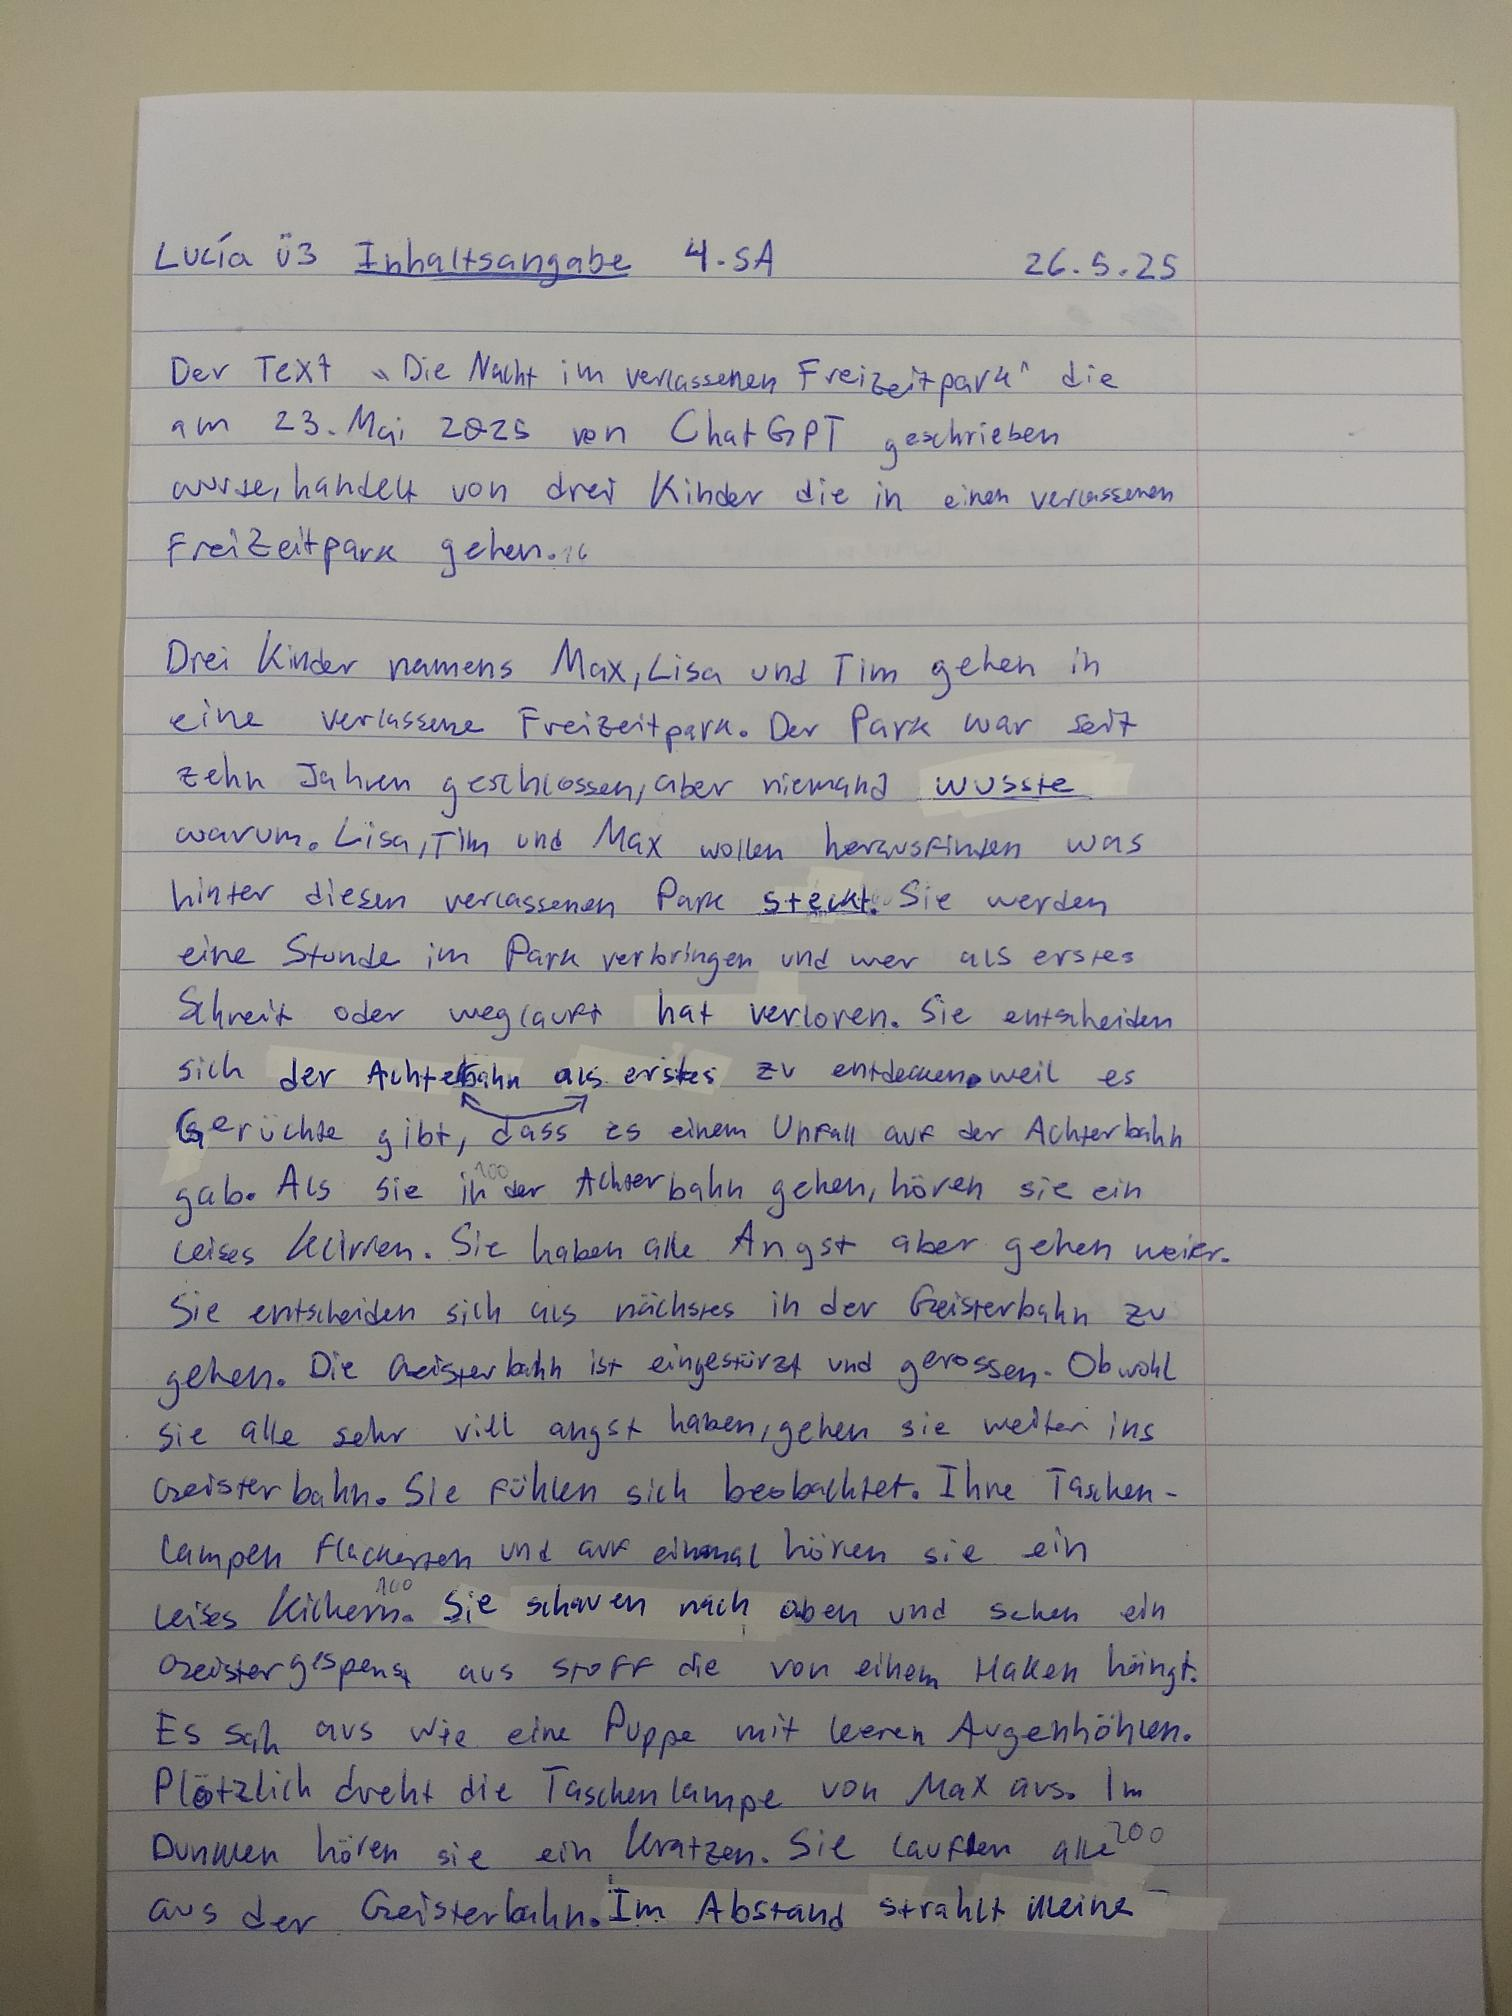 Lucía Ü3 Inhaltsangabe 4.SA 26.5.25
Der Text „Die Nacht im verlassenen Freizeitpark" die
am 23.Mai 2025 von ChatGPT geschrieben
wurde, handelt von drei Kinder die in einen verlassenen
Freizeitpark gehen.
Drei Kinder namens Max, Lisa und Tim gehen in
eine verlassene Freizeitpark. Der Park war seit
zehn Jahren geschlossen, aber niemand wusste
warum. Lisa, Tim und Max wollen herausfinden was
hinter diesen verlassenen Park steckt. Sie werden
eine Stunde im Park verbringen und wer als erstes
Schreit oder wegläuft hat verloren. Sie entscheiden
sich der Achterbahn als erstes zu entdecken, weil es
Gerüchte gibt, dass es einem Unfall auf der Achterbahn
100
gab. Als sie in der Achterbahn gehen, hören sie ein
leises Klirren. Sie haben alle Angst aber gehen weiter.
Sie entscheiden sich als nächstes in der Geisterbahn zu
gehen. Die Geisterbahn ist eingestürzt und gerossen. Obwohl
sie alle sehr viel angst haben, gehen sie weiter ins
Geisterbahn. Sie fühlen sich beobachtet. Ihre Taschen-
lampen flackerten und auf einmal hören sie ein
leises Kichern. Sie schauen nach oben und sehen ein
Geistergespenst aus stoff die von einem Haken hängt.
Es sah aus wie eine Puppe mit leeren Augenhöhlen.
Plötzlich dreht die Taschenlampe von Max aus. Im
Dunklen hören sie ein Kratzen. Sie lauften alle 200
aus der Geisterbahn. Im Abstand strahlt kleine